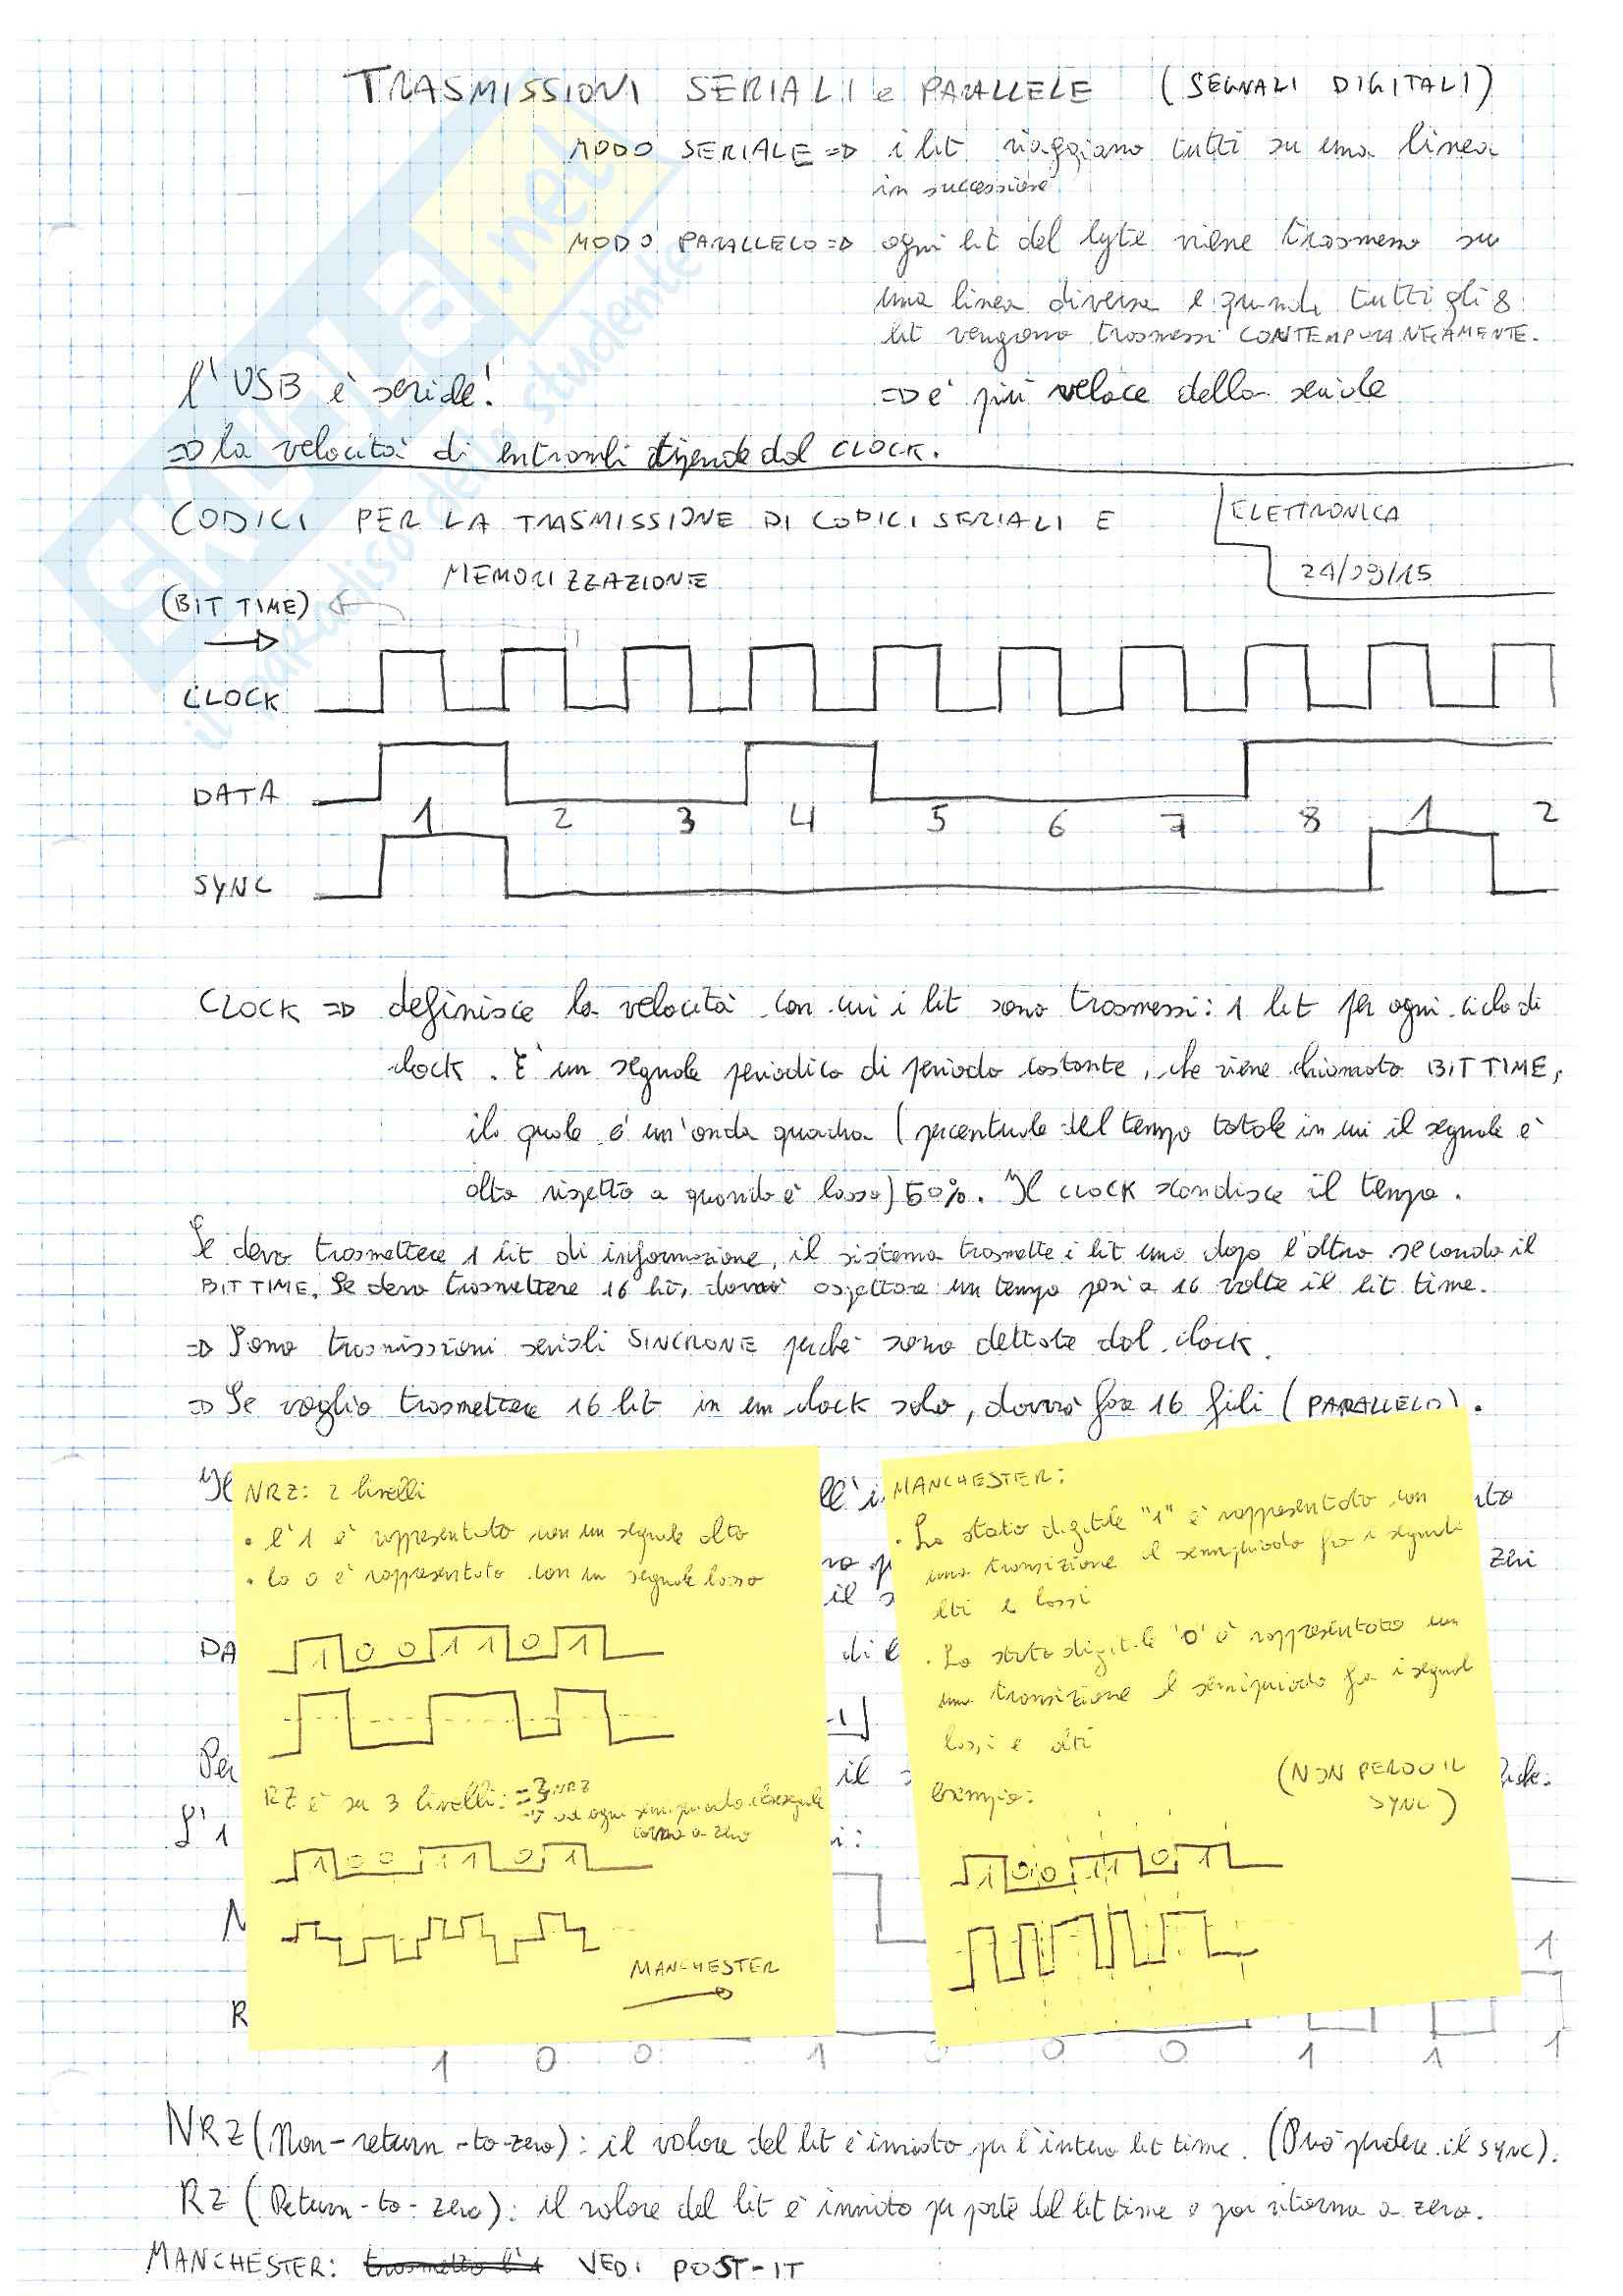 TRASMISSIONI SERIALI e PARALLELE (SEGNALI DIGITALI)
MODO SERIALE => i bit viaggiano tutti su una linea
in successione
MODO PARALLELO => ogni bit del byte viene trasmesso su
una linea diversa e quindi tutti gli 8
bit vengono trasmessi CONTEMPORANEAMENTE.
l'USB è seriale!
=> è più veloce della seriale
=> la velocità di entrambi dipende dal CLOCK.
CODICI PER LA TRASMISSIONE DI CODICI SERIALI E
MEMORIZZAZIONE
ELETTRONICA
24/09/15
(BIT TIME)
CLOCK
DATA
1 2 3 4 5 6 7 8 1 2
SYNC
CLOCK => definisce la velocità con cui i bit sono trasmessi: 1 bit per ogni ciclo di
clock. È un segnale periodico di periodo costante, che viene chiamato BIT TIME,
il quale è un'onda quadra (percentuale del tempo totale in cui il segnale è
alto rispetto a quando è basso) 50%. Il CLOCK scandisce il tempo.
Se devo trasmettere 1 bit di informazione, il sistema trasmette i bit uno dopo l'altro secondo il
BIT TIME. Se devo trasmettere 16 bit, dovrò aspettare un tempo pari a 16 volte il bit time.
=> Sono trasmissioni seriali SINCRONE perché sono dettate dal clock.
=> Se voglio trasmettere 16 bit in un clock solo, dovrò fare 16 fili (PARALLELO).
Il
NRZ: 2 livelli
• l'1 è rappresentato con un segnale alto
• lo 0 è rappresentato con un segnale basso
1 0 0 1 1 0 1
RZ è su 3 livelli: = NRZ
=> ad ogni semiperiodo il segnale
torna a zero
1 0 0 1 1 0 1
MANCHESTER
MANCHESTER:
• Lo stato digitale "1" è rappresentato con
una transizione al semiperiodo fra i segnali
alti e bassi
• Lo stato digitale "0" è rappresentato con
una transizione al semiperiodo fra i segnali
bassi e alti
(NON PERDO IL
SYNC)
Esempio:
1 0 0 1 1 0 1
DA
di
Per
il
L'1
N
1
R
1 0 0 1 0 0 0 1 1 1
NRZ (Non-return-to-zero): il valore del bit è inviato per l'intero bit time. (Può perdere il sync).
RZ (Return-to-zero): il valore del bit è inviato per parte del bit time e poi ritorna a zero.
MANCHESTER: trasmetto l'1 VEDI POST-IT